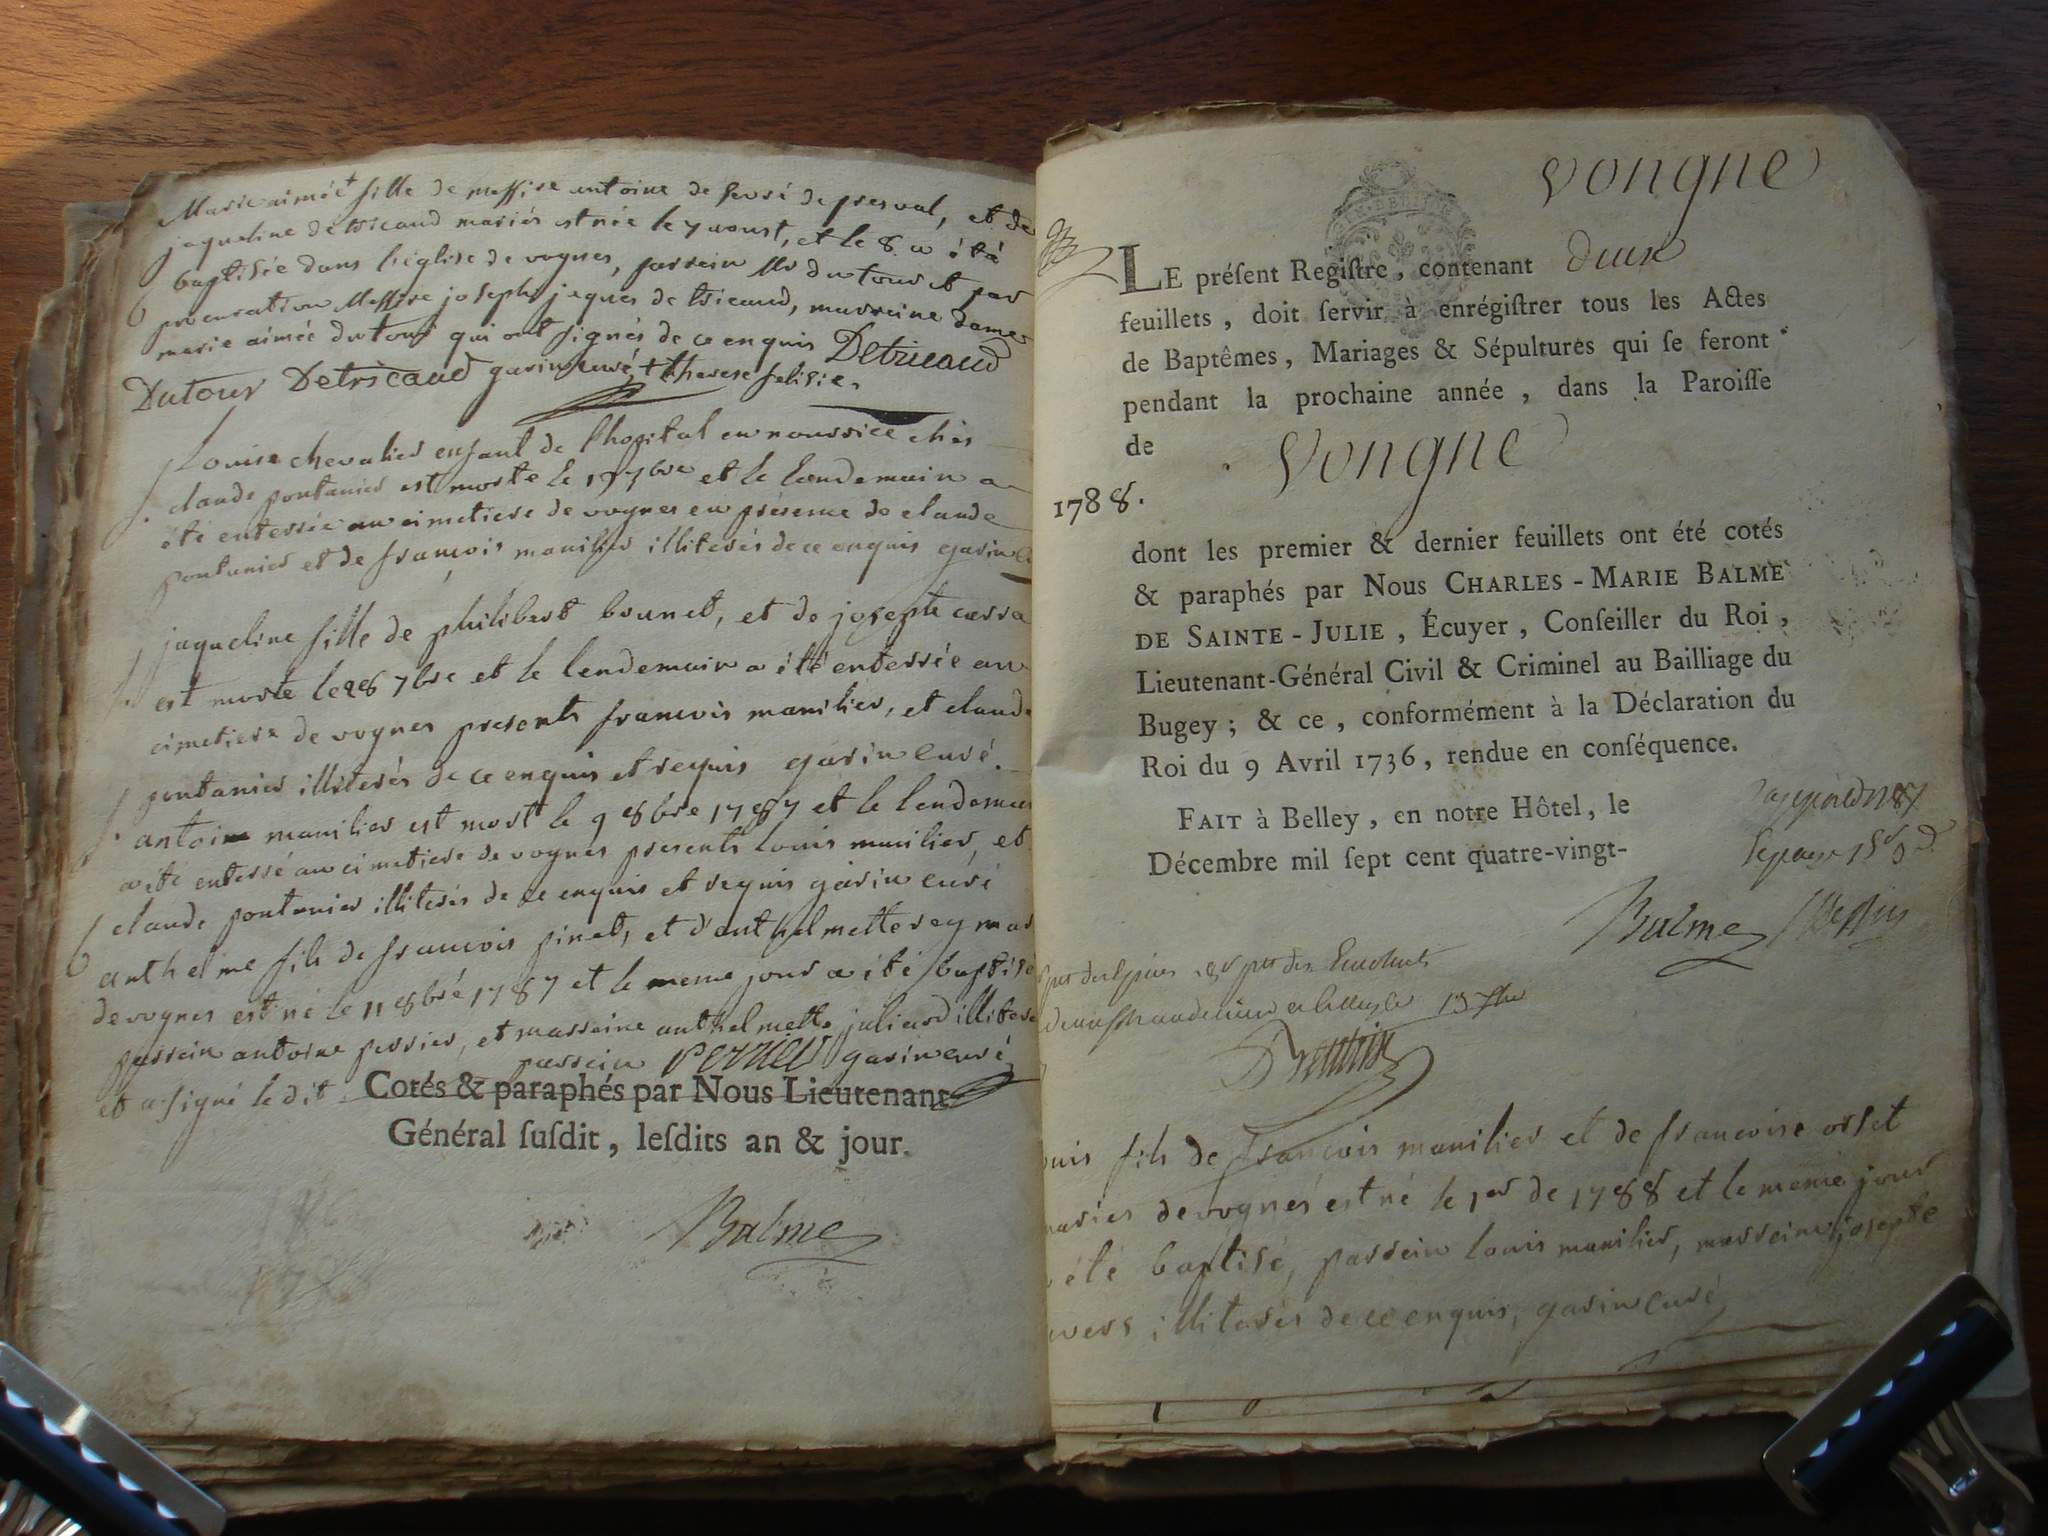 Marie aimée + fille de messire antoine de seyré de presval, et de
jaqueline detricaud mariés est née le 7 aoust, et le 8 a été
baptisée dans l'eglise de vognes, parrein Mr dutour et par
procuration Messire joseph jaques de tricaud, marreine dame
marie aimée dutour qui ont signés de ce enquis Detricaud
Dutour Detricaud garin curé + therese felisie.
Louise chevalier enfant de l'hopital en nourrice chés
claude pontanier est morte le 19 7bre et le lendemain a
été enterrée au cimetiere de vognes en présence de claude
pontanier et de francois manilier illiterés de ce enquis garin
jaqueline fille de philibert brunet, et de josephe carra
est morte le 28 7bre et le lendemain a été enterrée au
cimetiere de vognes presents francois manilier, et claude
pontanier illiterés de ce enquis et requis garin curé.
antoine manilier est mort le 9 8bre 1787 et le lendemain
a été enterré au cimetiere de vognes presents louis manilier, et
claude pontanier illiterés de ce enquis et requis garin curé
anthelme fils de francois pinet, et d'anthelmette rey mar
de vognes est né le 11 8bre 1787 et le meme jour a été baptisé
parrein antoine perrier, et marreine anthelmette juliard illiterés
et a signé le dit parrein perrier garin curé
Cotés & paraphés par Nous Lieutenant
Général ſuſdit, leſdits an & jour.
Balme
vongne
LE préſent Regiſtre, contenant deux
feuillets, doit ſervir à enrégiſtrer tous les Actes
de Baptêmes, Mariages & Sépultures qui ſe feront
pendant la prochaine année, dans la Paroiſſe
de Vongne
1788.
dont les premier & dernier feuillets ont été cotés
& paraphés par Nous CHARLES-MARIE BALME
DE SAINTE-JULIE, Écuyer, Conſeiller du Roi,
Lieutenant-Général Civil & Criminel au Bailliage du
Bugey; & ce, conformément à la Déclaration du
Roi du 9 Avril 1736, rendue en conſéquence.
FAIT à Belley, en notre Hôtel, le
Décembre mil ſept cent quatre-vingt-
Balme
ouis fils de francois manilier et de francoise orset
maries de vognes est né le 1er de 1788 et le meme jour
a été baptisé, parrein louis manilier, marreine josephe
illiterés de ce enquis, garin curé